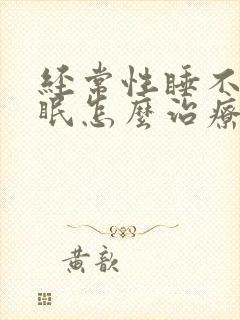 經常性睡不
眠怎麼治療
黃歆